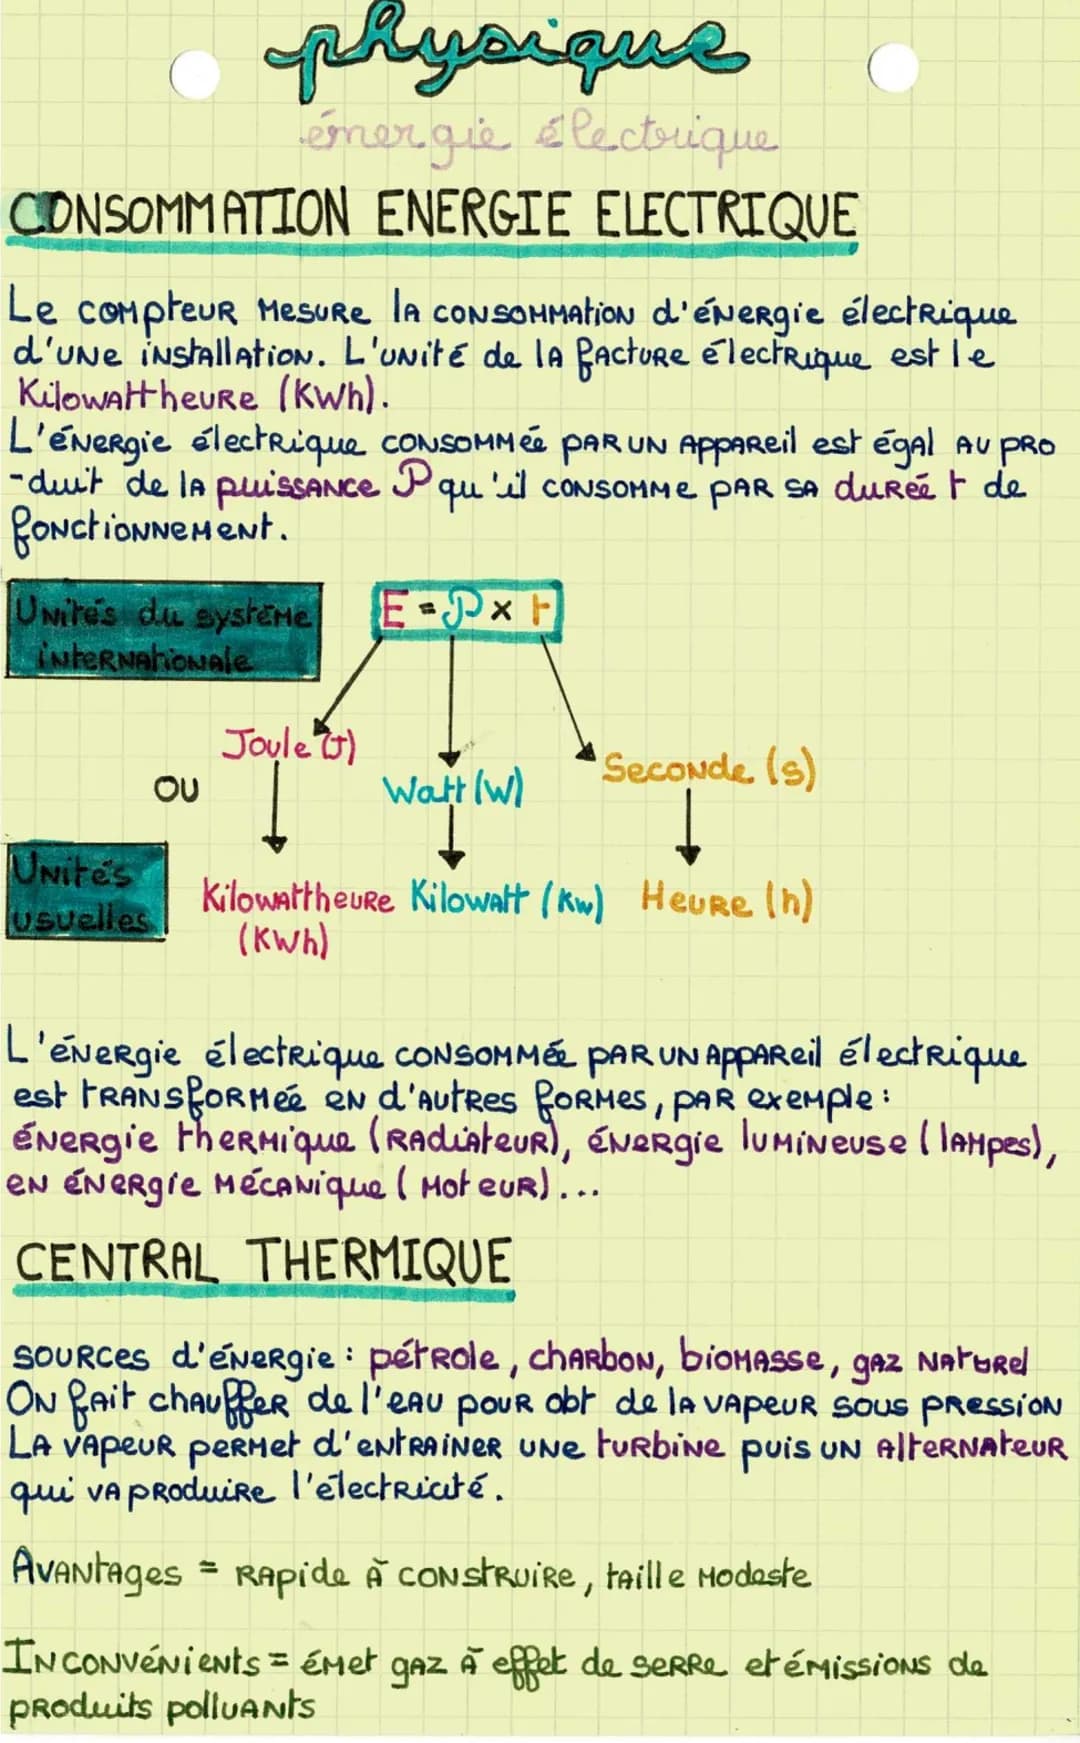 physique
énergie électrique
CONSOMMATION ENERGIE ELECTRIQUE
Le compteur mesure la consommation d'énergie électrique
d'une installation. L'unité de la facture électrique est le
Kilowattheure (KWh).
L'énergie électrique consommée par un appareil est égal au pro
-duit de la puissance P qu'il consomme par sa durée t de
fonctionnement.
Unités du système
internationale
E = P x t
Joule (J)
Watt (W)
Seconde (s)
OU
Unités
usuelles
Kilowattheure
(KWh)
Kilowatt (Kw)
Heure (h)
L'énergie électrique consommée par un appareil électrique
est transformée en d'autres formes, par exemple :
énergie thermique (radiateur), énergie lumineuse (lampes),
en énergie mécanique (moteur)...
CENTRAL THERMIQUE
sources d'énergie : pétrole, charbon, biomasse, gaz naturel
On fait chauffer de l'eau pour obt de la vapeur sous pression
La vapeur permet d'entrainer une turbine puis un alternateur
qui va produire l'électricité.
Avantages = rapide à construire, taille modeste
Inconvénients = émet gaz à effet de serre et émissions de
produits polluants